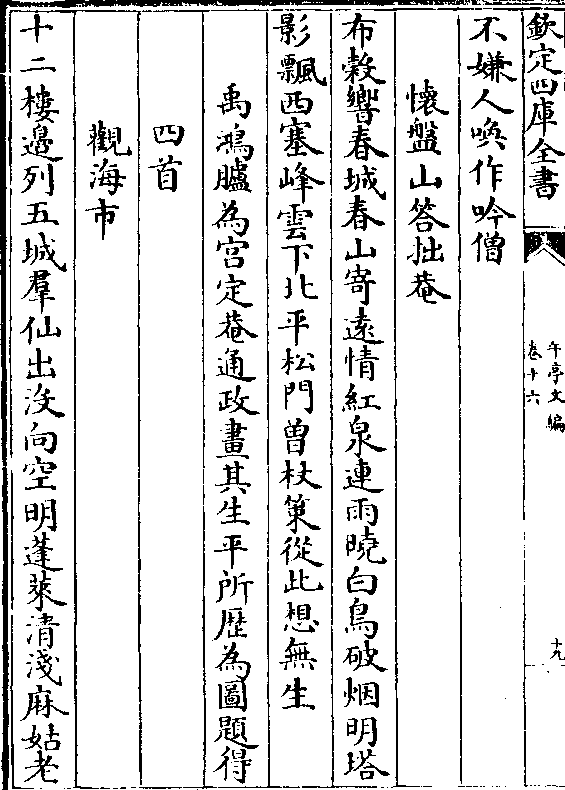 欽定四庫全書
午亭文編
卷十六
十九
不嫌人喚作吟僧
懷盤山答拙菴
布穀響春城春山寄遠情紅泉連雨曉白鳥破烟明塔
影飄西塞峰雲下北平松門曽杖䇿從此想無生
禹鴻臚為宫定菴通政畫其生平所歴為圖題得
四首
觀海市
十二樓邉列五城羣仙出沒向空明蓬萊清淺麻姑老